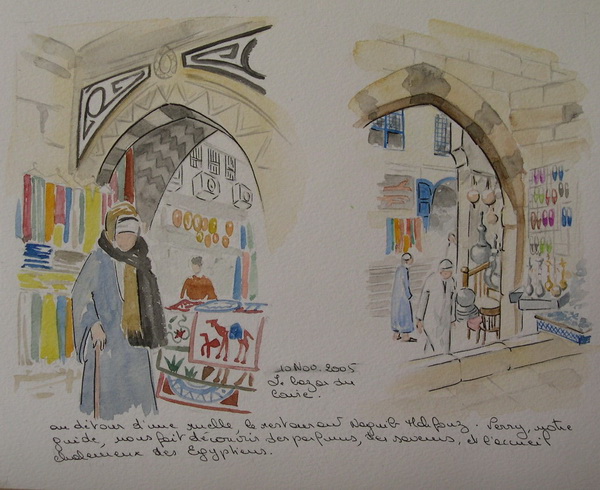 10 Nov. 2005
Le bazar du
Caire.
au détour d'une ruelle, le restaurant Naguib Mahfouz. Perry, notre
guide, nous fait découvrir des parfums, des saveurs, et l'accueil
chaleureux des Egyptiens.